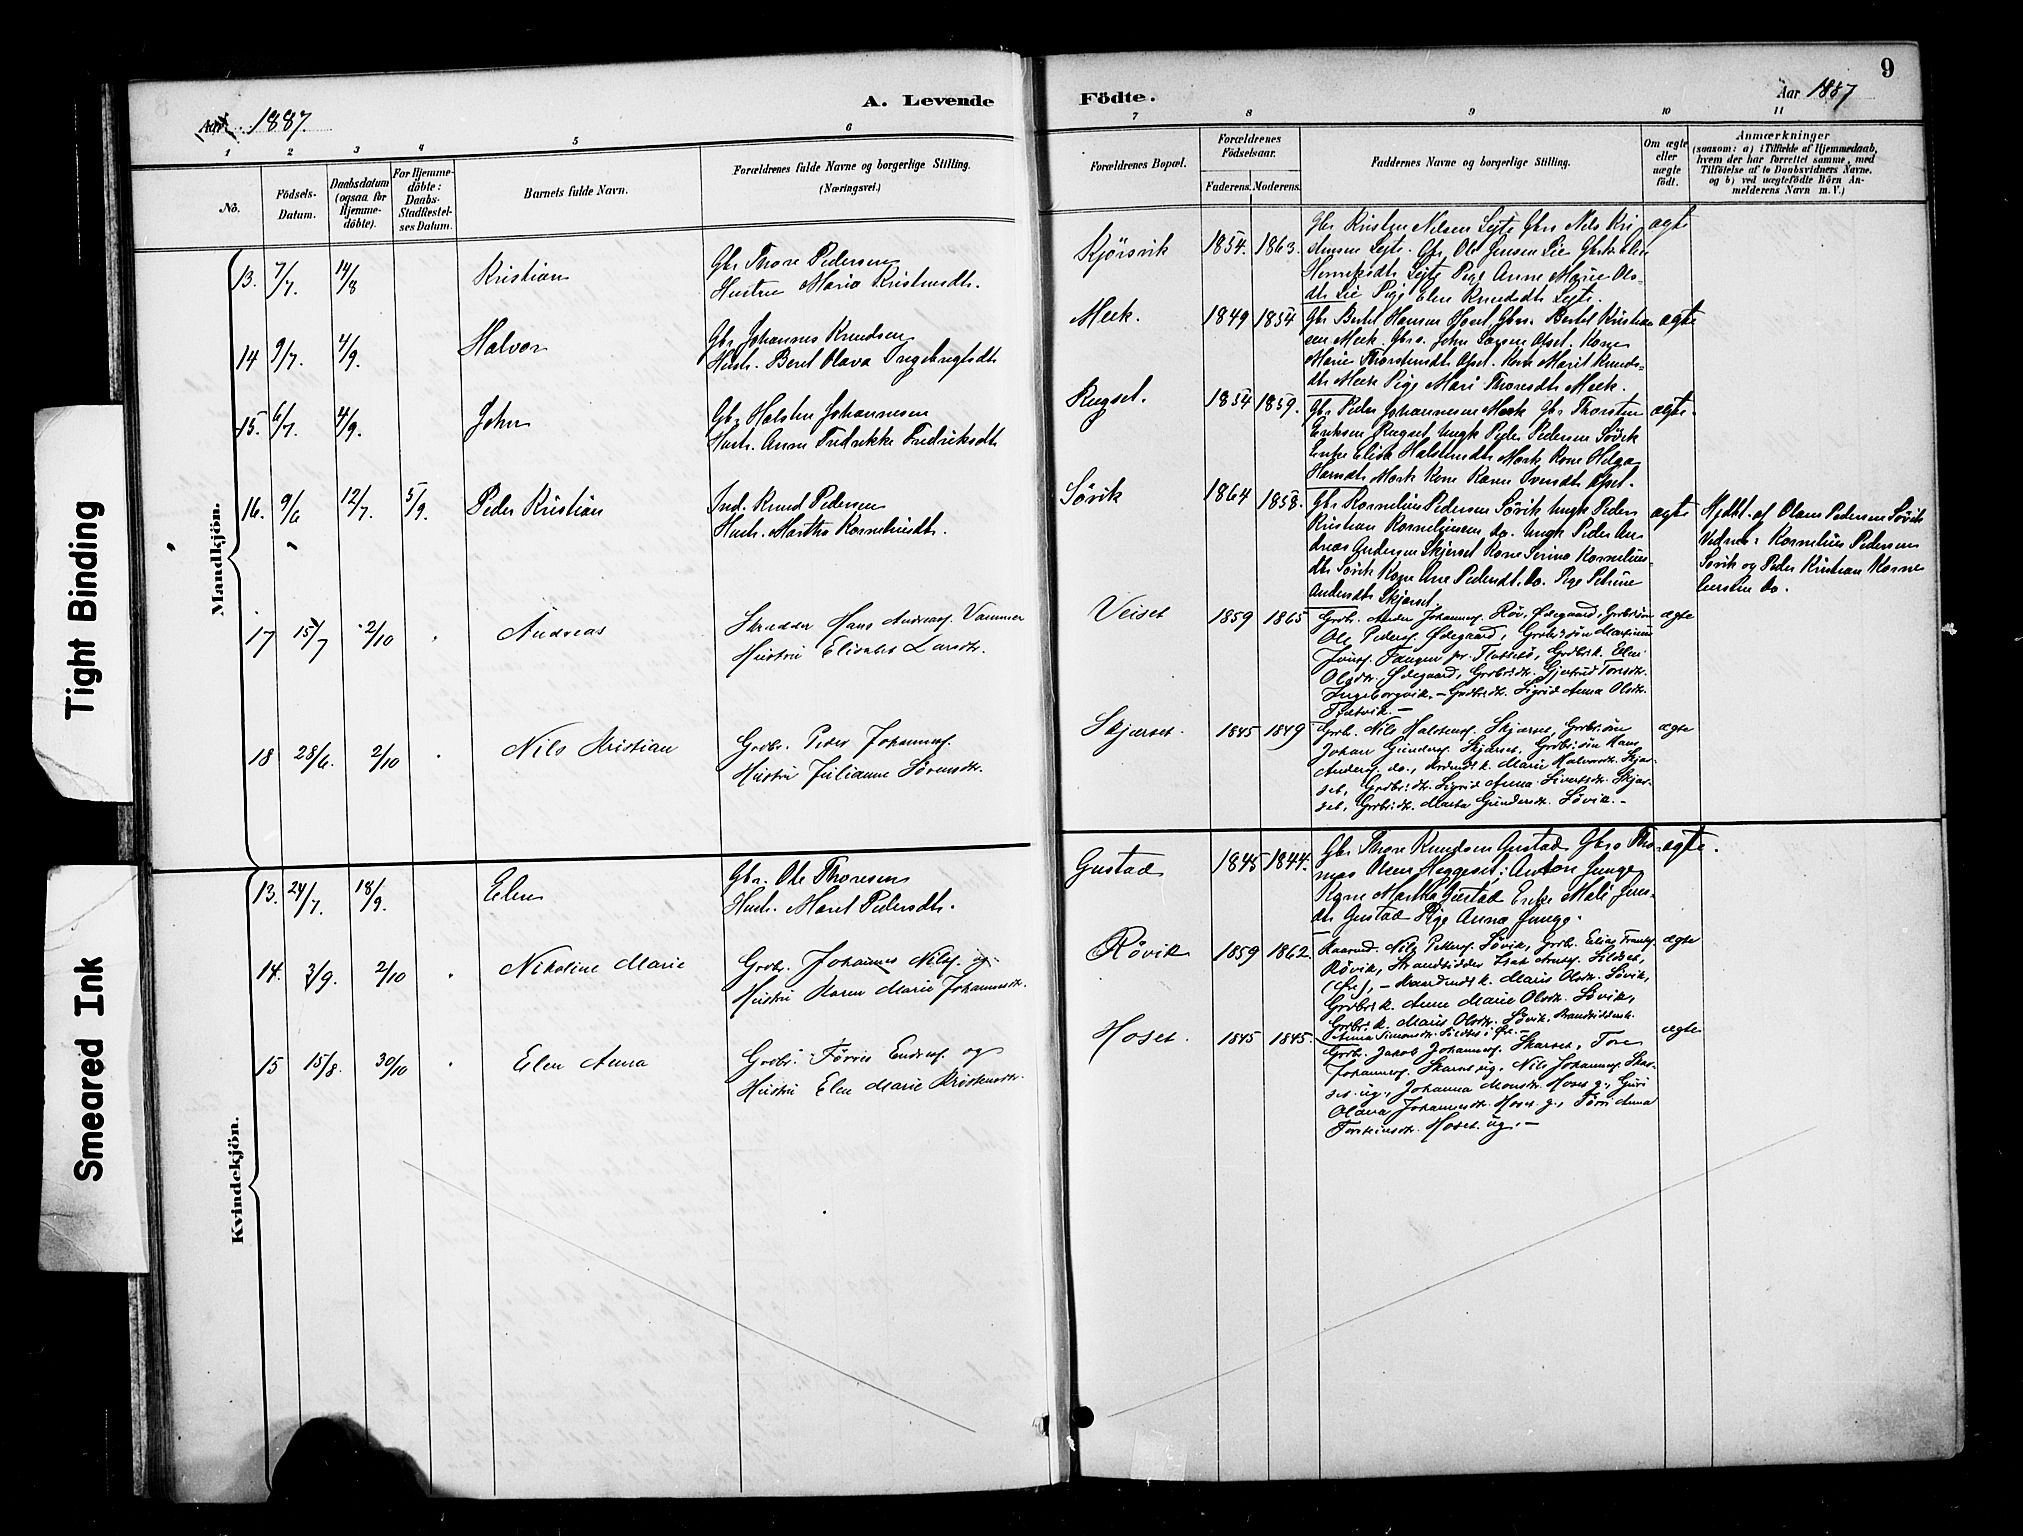 9
Aar 1887.
A. Levende
Födte.
Aar 1887
1 2 3 4 5 6
7 8 9 10 11
No.
Födsels-
Datum.
Daabsdatum
(ogsaa for
Hjemme-
döbte).
For Hjemme-
döbte:
Daabs-
Stadfæstel-
ses Datum.
Barnets fulde Navn.
Forældrenes fulde Navne og borgerlige Stilling.
(Næringsvei.)
Forældrenes Bopæl.
Forældrenes
Födselsaar.
Faderens. Moderens.
Faddernes Navne og borgerlige Stilling.
Om ægte
eller
uægte
födt.
Anmærkninger
(saasom: a) i Tilfælde af Hjemmedaab,
hvem der har forrettet samme, med
Tilföielse af to Daabsvidners Navne.
og b) ved uægtefödte Börn An-
melderens Navn m. V.)
Mandkjön.
13. 7/7 14/8 Kristian
Gbr Thore Pedersen
Hustru Maria Kristensdt.
Kjørsvik 1854. 1863.
Gbr Kristen Nilsen Leite Gbrs Nils Kri
stensen Leite. Gbr. Ole Jensen Lie
Henriksdt Leite Pige Anne Marie Ols-
dt. Lie Pige Elen Knudsdt Leite.
ægte
14 9/7. 4/9. Halvor
Gbr Johannes Knudsen
Hust. Beret Olava Ingebrigtsdt
Meek. 1849 1854
Gbr Bertel Hansen Hoset Gbrs. Bertel Kristian
sen Meek. Gbrs. John Larsen Opset. Kone
Marie Thorstensdt Opset. Kone Marit Knuds-
dt Meek Pige Mari Thoresdt Meek.
ægte
15. 6/7. 4/9. John
Gbr Halsten Johannesen
Hust. Anne Fredrikke Fredriksdt
Rugset. 1854 1859.
Gbr Peder Johannesen Meek Gbr Thorsten
Eriksen Rugset Ungk Peder Pedersen Søvik
Enke Elisb Halstensdt Meek Kone Helga
Meek Kone Karen Svendsdt Opset.
ægte.
16. 9/6 12/7 5/9. Peder Kristian
Ind. Knud Pedersen
Hust. Martha Korneliusdt.
Søvik 1864 1858.
Gbr Kornelius Pedersen Søvik Ungk Peder
Kristian Korneliussen do. Ungk Peder An
dreas Andersen Skjerset Kone Serina Kornelius-
dt Søvik Kone Ane Pedersdt. do. Pige Petrine
Andersdt Skjerset
ægte
Hjdbt. af Olava Pedersen Søvik
Vidner: Kornelius Pedersen
Søvik og Peder Kristian Korne
liussen do.
17 15/7 2/10 Andreas
Skredder Hans Andreas Vammer
Hustru Elisabet Larsdtr.
Veiset 1859 1865
Grdbr. Anders Johannes. Røv. Ødegaard, Grdbrsøn
Ole Peders. Ødegaard, Grdbrsøn Martinus
Jons. Fanger pr. Flatsetø, Grdbrk. Elen
Olsdtr. Ødegaard, Grdbrdtr. Gjertrud Toresdtr.
Ingeborgvik. — Grdbrdtr. Sigrid Anna Olsdtr.
ægte
18 28/6. 2/10 Nils Kristian
Grdbr. Peder Johannes.
Hustru Julianne Sørensdtr.
Skjerset. 1845 1849
Grdb. Nils Halstens. Skjerset, Grdbrsøn
Johan Gunders. Skjerset, Grdbrsøn Hans
Anders. do., k. Marie Halvorsdtr. Skjer-
set, Grdbrdtr. Sigrid Anna Sivertsdtr. Skjer-
set, Grdbrdtr. Marta Gundersdtr. Søvik. —
ægte
Kvindekjön.
13. 24/7. 18/9. Elen
Gbr. Ole Thoresen
Hust. Marit Pedersdt.
Gustad 1845 1844.
Gbr Thore Knudsen Gustad Gbrs Tho-
mas Olsen Heggeset; Anton Junge
Kone Martha Gustad Enke Mali Jens-
dt Gustad Pige Anna Junge.
ægte.
14. 3/9. 2/10 Nikoline Marie
Grdbr. Johannes Nils. og
Hustru Karen Marie Johannesdtr.
Røvik 1859 1862.
Nils Petters. Søvik, Grdbr. Elias Frants.
Røvik, Strandsidder Isak
(Øre), — k. Maris Olsdtr. Søvik,
Grdbrk. Anne Marie Olsdtr. Søvik,
Grdbr. k. Maris Olsdtr. Søvik,
Anna Simonsdtr.
ægte
15 15/8. 30/10 Elen Anna
Grdbr. Torris Endres. og
Hustru Elen Marie Kristensdtr.
Hoset. 1845 1845.
Grdb. Jakob Johannes. Skarset, Tore
Johannes. Skarset ug, Nils Johannes. Skar-
set ug., Johanna Monsdtr. Hoset g., Guri
Olava Johannesdtr. Hoset g., Anna
Torsteinsdtr. Hoset ug. —
ægte
Tight Binding
Smeared Ink